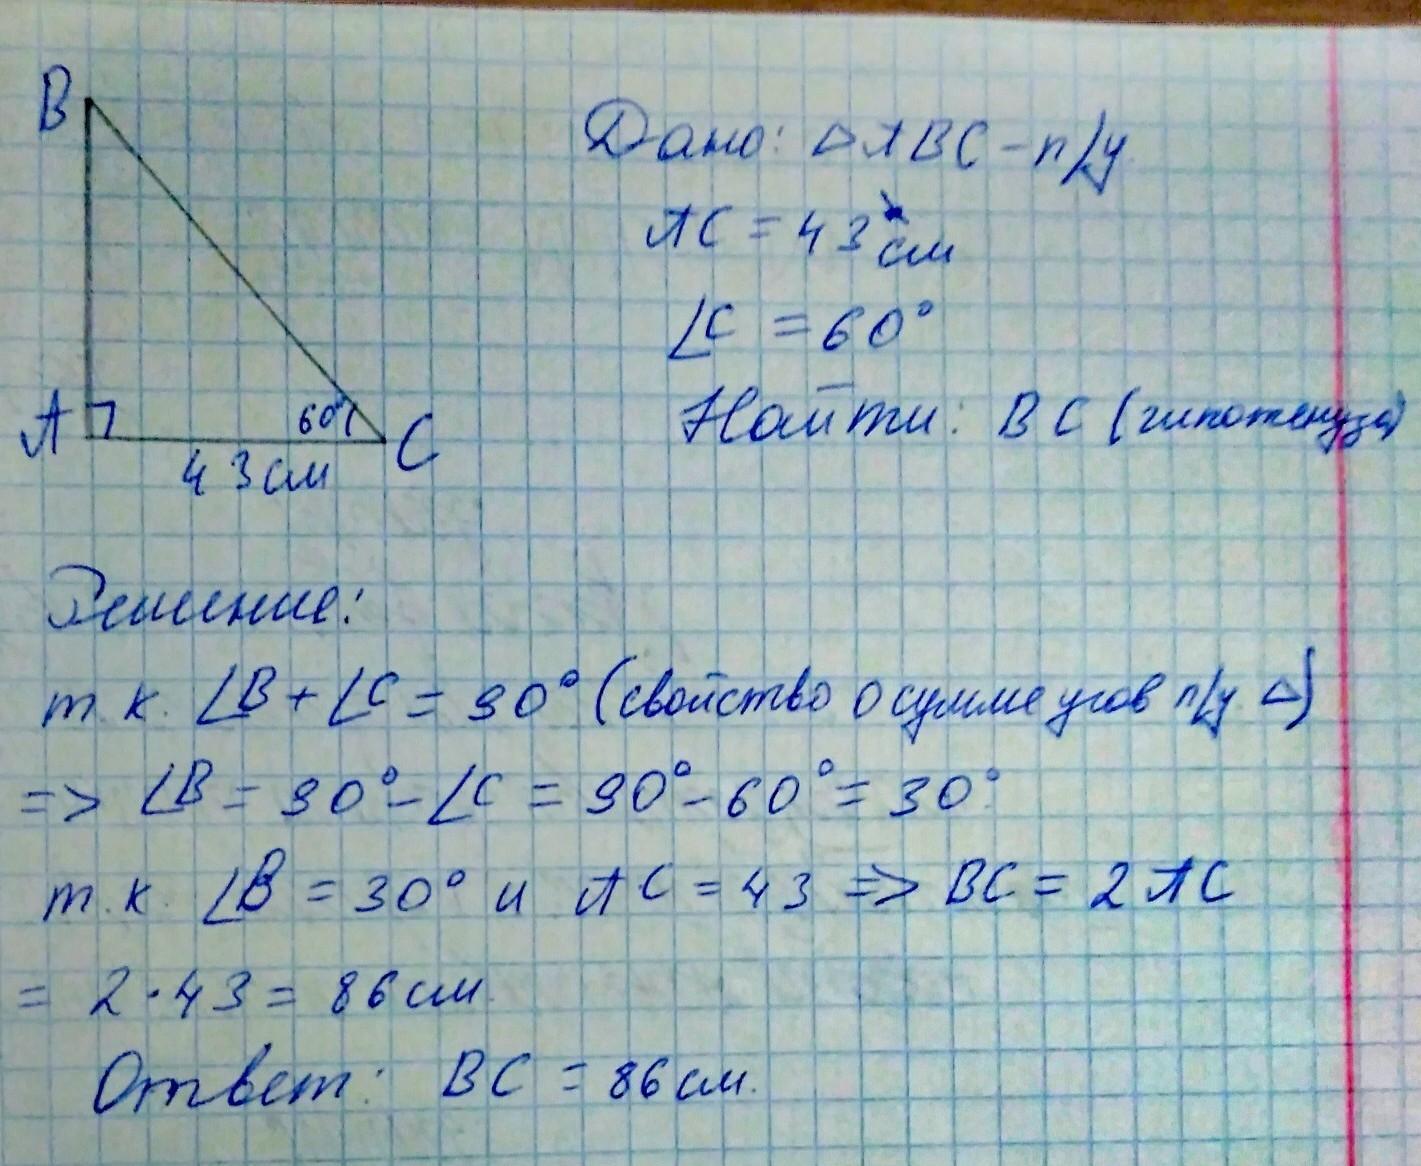 B
Дано: △ABC - п/у
AC = 43 см
∠C = 60°
Найти: BC (гипотенуза)
A 60° C
43 см
Решение:
т.к. ∠B + ∠C = 90° (свойство о сумме углов п/у △)
=> ∠B = 90° - ∠C = 90° - 60° = 30°
т.к. ∠B = 30° и AC = 43 => BC = 2AC
= 2 · 43 = 86 см.
Ответ: BC = 86 см.